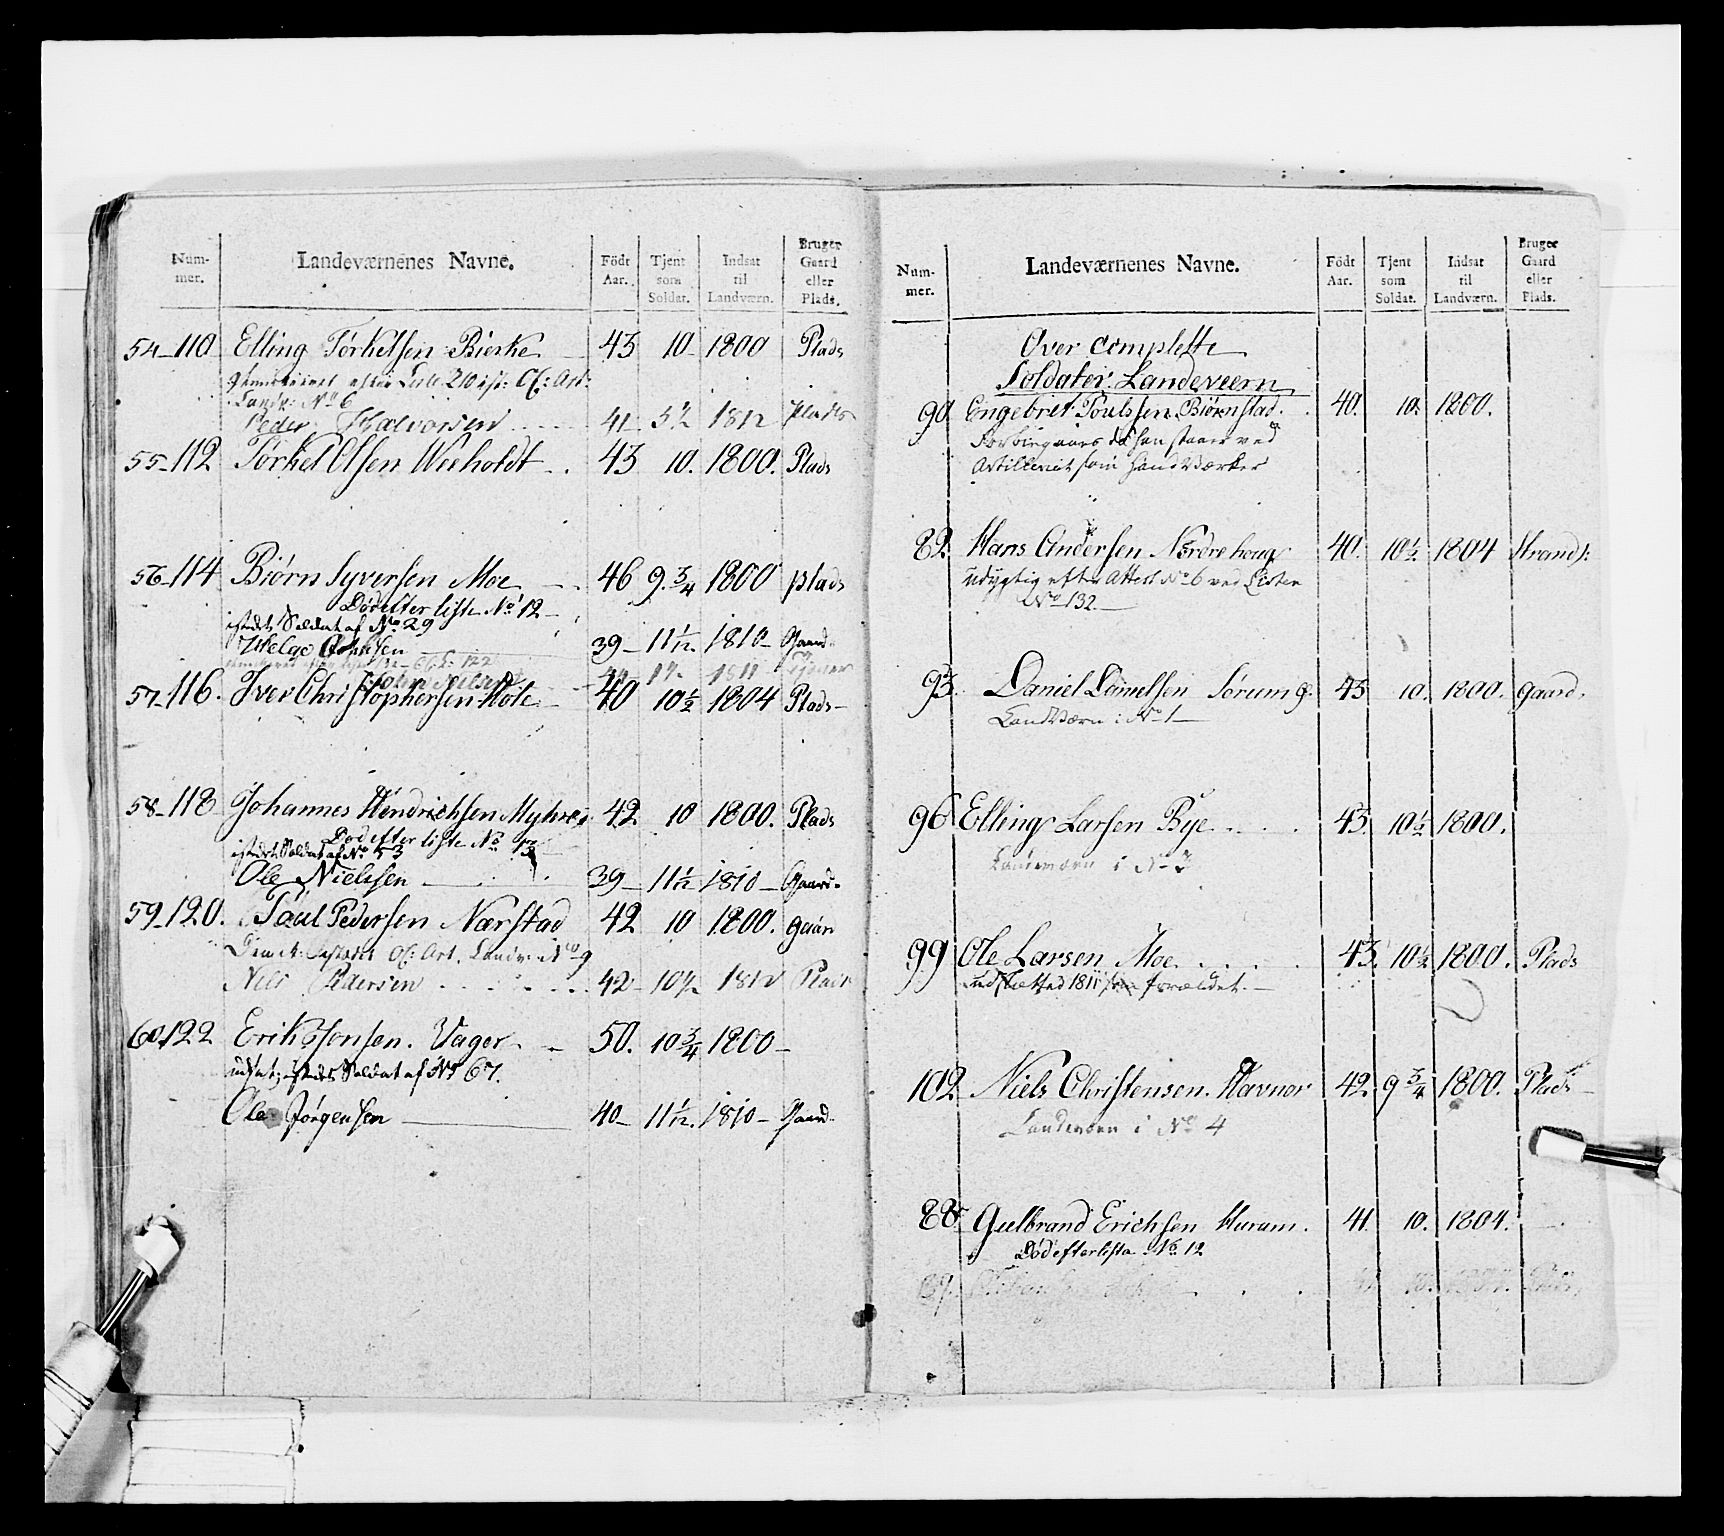 Num-mer. Landeværnenes Navne. Födt Aar. Tjent som Soldat. Indsat til Landværn. Bruger Gaard eller Plads.
54-110 Elling Törkelsen Bierke 43 10 1800 Plads
Landv: No 6
Peder Halvorsen 41 5½ 1812 Plads
55-112 Törkel Olsen Weeholdt 43 10. 1800. Plads
56-114 Biörn Syversen Moe 46 9.¾ 1800 Plads
Död efter liste No 12
istedet Soldat af No 29
Helge 39 11 1/12. 1810 Gaard
1811
57-116. Iver Christophersen Hole 40 10½ 1804 Plads
58-118 Johannes Hendrichsen Myhre 42 10 1800. Plads
Död efter liste No 13
istedet Soldat af No 53
Ole Nielsen 39 11 1/12 1810 Gaard
59-120. Paul Pedersen Nærstad 42 10 1800. Gaar
Art. Landv: No 9
Nels Pedersen 42 10½ 1812 Plads
60.122 Erik Jonsen. Vager 50. 10¾ 1800
udsat; istedet Soldat af No 67.
Ole Jörgensen 40 11 1/12. 1810 Gaard
Num-mer. Landeværnenes Navne. Födt Aar. Tjent som Soldat. Indsat til Landværn. Bruger Gaard eller Plads.
Over complette
Soldater. Landeveern
90. Engebret Poulssen Biörnstad. 40. 10. 1800.
Forbiegaaes da han staaer ved
Artilleriet som Handværker
89. Hans Andersen Nordrehoug 40. 10½ 1804 Strands:
udygtig efter Attest No 6 ved Listen
No 132
93. Daniel Danielsen Sörum g. 43 10. 1800. Gaard.
Landværn: No 1
96 Elling Larsen Bye 43 10½ 1800.
Landværn i No 3
99 Ole Larsen Moe 43. 10½ 1800. Plads
udslettet 1811 som forældet.
102. Niels Christensen. Havnor 42. 9¾ 1800. Plads
Landværn i No 4
88. Gulbrand Erichsen Hurum. 41. 10. 1804.
Död efter liste No 12